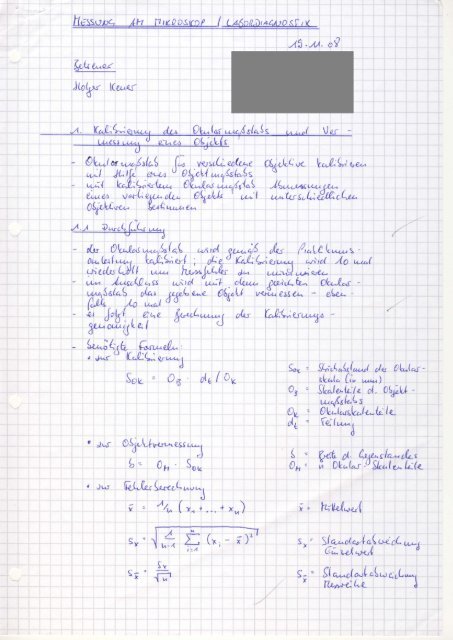 MESSUNG AM MIKROSKOP / LABORDIAGNOSTIK
19.11.08
Betreuer
Holger
1. Kalibrierung des Okularmaßstabs und Ver-
messung eines Objekts
- Okularmaßstab für verschiedene Objektive kalibrieren
mit Hilfe eines Objektmaßstabs
- mit kalibriertem Okularmaßstab Abmessungen
eines vorliegenden Objekts mit unterschiedlichen
Objektiven bestimmen
1.1 Durchführung
- der Okularmaßstab wird gemäß der Praktikums-
anleitung kalibriert; die Kalibrierung wird 10 mal
wiederholt um Messfehler zu minimieren
- im Anschluss wird mit dem geeichten Okular-
maßstab das gegebene Objekt vermessen - eben-
falls 10 mal
- es folgt eine Berechnung der Kalibrierungs-
genauigkeit
- benötigte Formeln:
• zur Kalibrierung
S_OK = O_B · d_t / O_K
S_OK = Strichabstand der Okular-
skala (in mm)
O_B = Skalenteile d. Objekt-
maßstabs
O_K = Okularskalenteile
d_t = Teilung
• zur Objektvermessung
b = O_M · S_OK
b = Breite d. Gegenstandes
O_M = Okular-Skalenteile
• zur Fehlerberechnung
x̄ = 1/n (x₁ + ... + xₙ)
x̄ = Mittelwert
s_x = √( 1/(n-1) Σ_{i=1}^{n} (x_i - x̄)² )
s_x = Standardabweichung
Einzelwert
s_x̄ = s_x/√n
s_x̄ = Standardabweichung
Messreihe